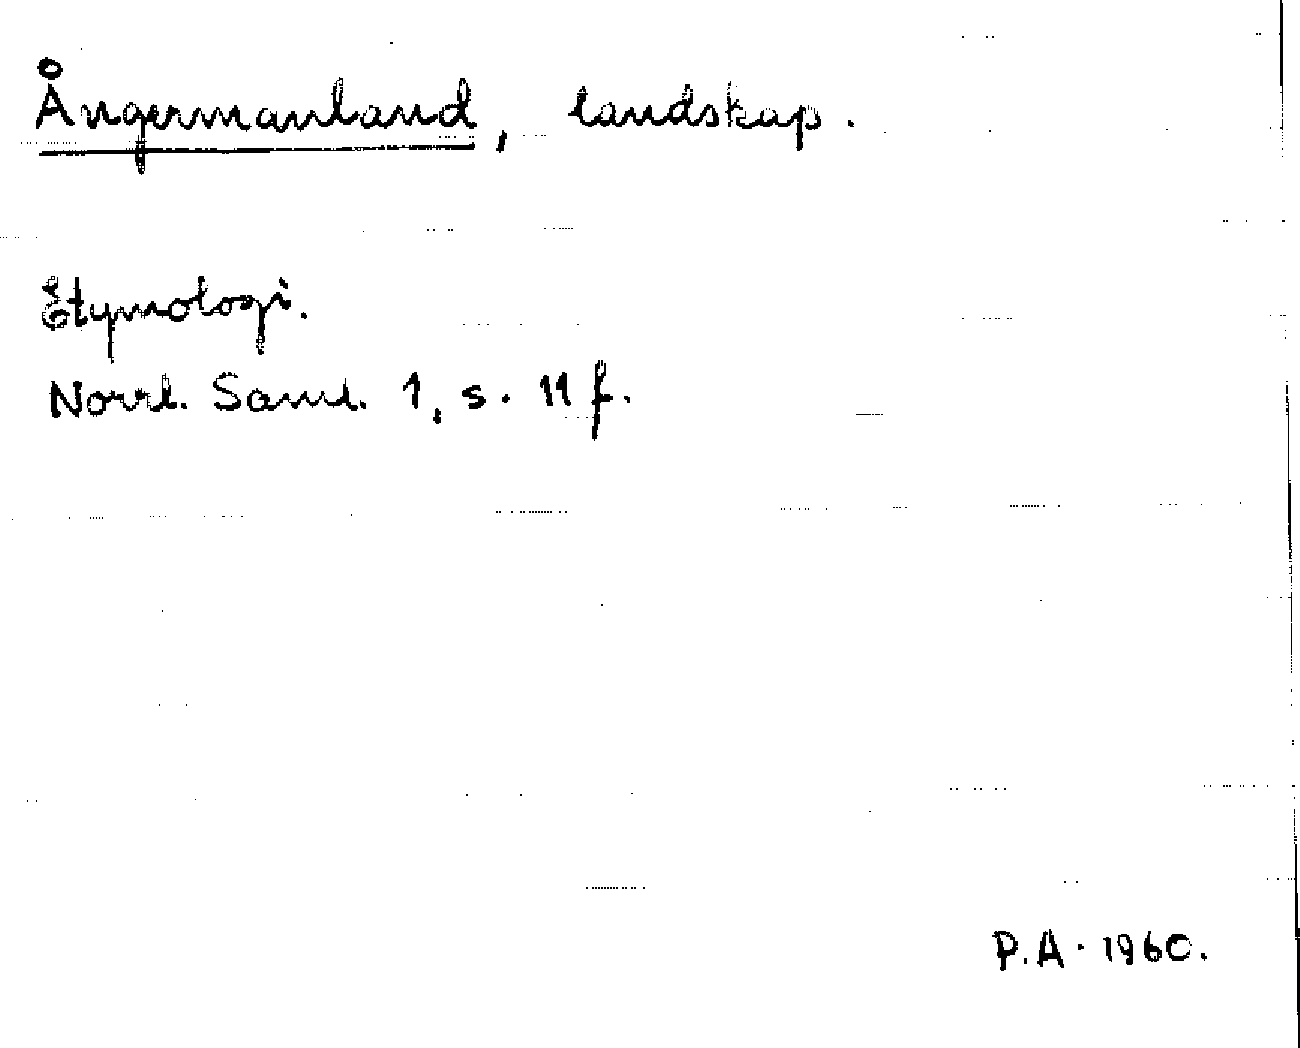 Ångermanland, landskap.
Etymologi.
Norrl. Saml. 1, s. 11 f.
P.A. 1960.